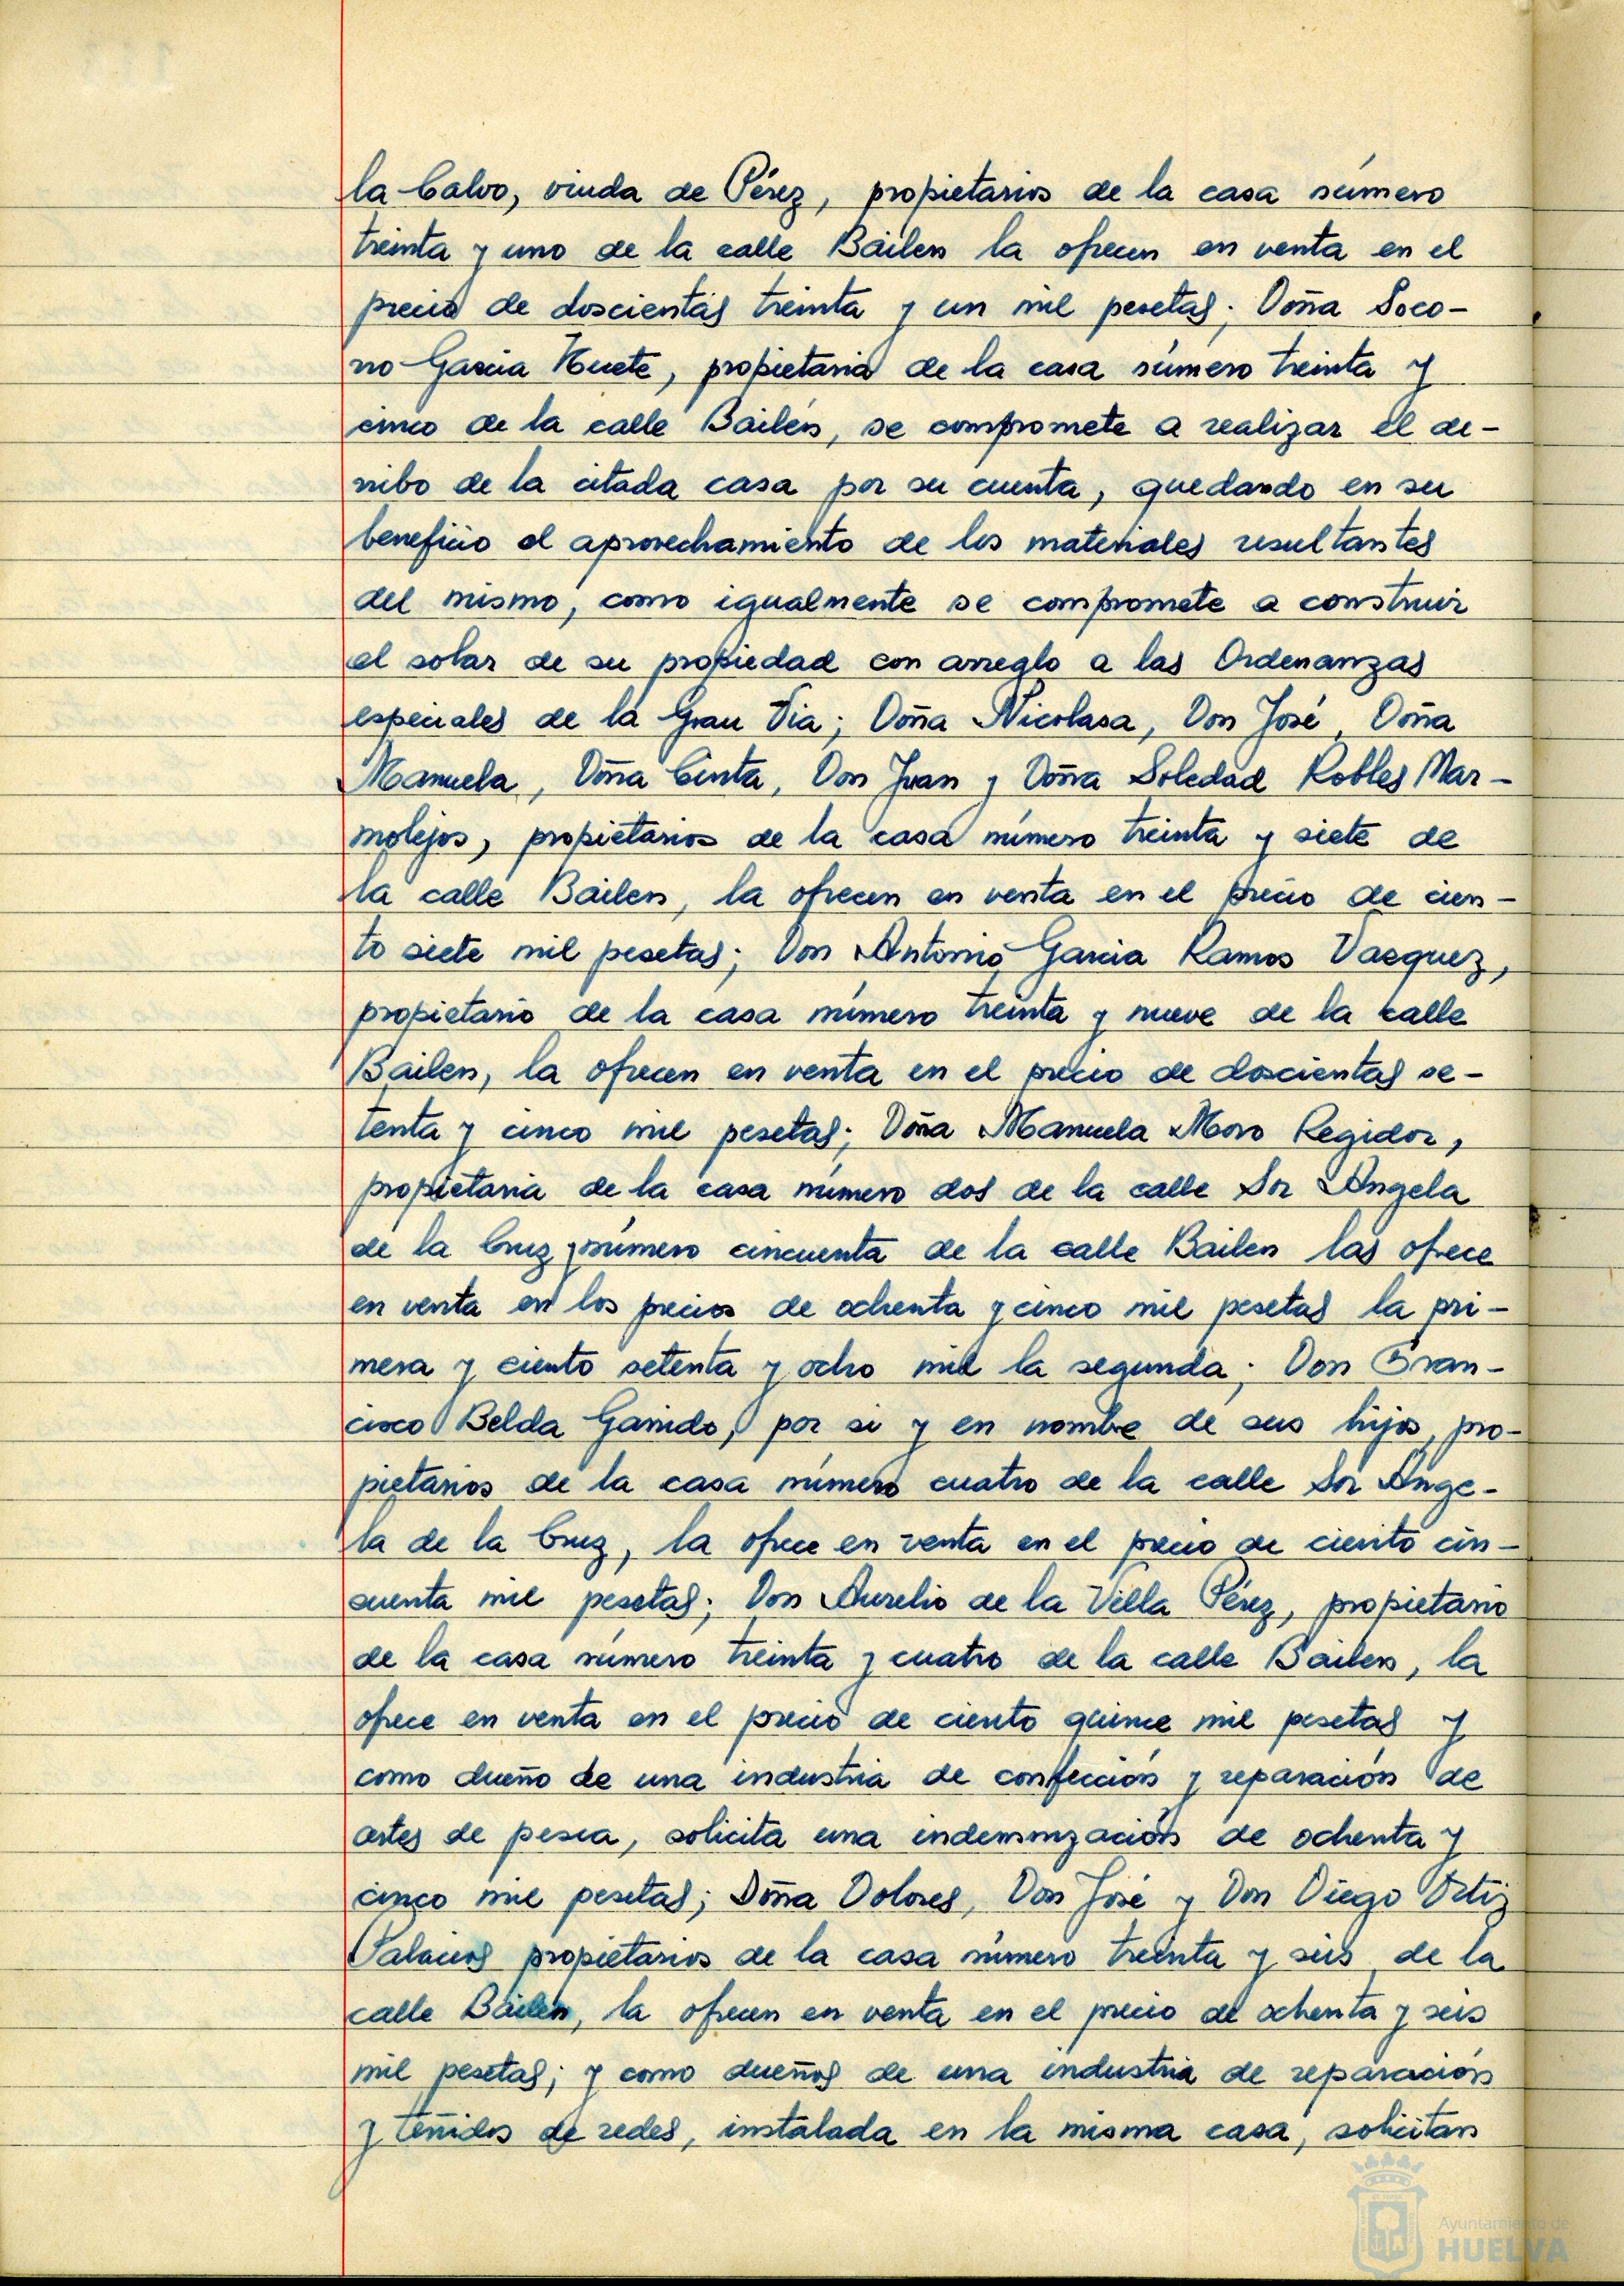 la Calvo, viuda de Pérez, propietarios de la casa número
treinta y uno de la calle Bailen la ofrecen en venta en el
precio de doscientas treinta y un mil pesetas; Doña Soco-
rro García Huete, propietaria de la casa número treinta y
cinco de la calle Bailén, se compromete a realizar el de-
rribo de la citada casa por su cuenta, quedando en su
beneficio el aprovechamiento de los materiales resultantes
del mismo, como igualmente se compromete a construir
el solar de su propiedad con arreglo a las Ordenanzas
especiales de la Gran Via; Doña Nicolasa, Don José, Doña
Manuela, Doña Cinta, Don Juan y Doña Soledad Robles Mar-
molejos, propietarios de la casa número treinta y siete de
la calle Bailen, la ofrecen en venta en el precio de cien-
to siete mil pesetas; Don Antonio Garcia Ramos Vazquez,
propietario de la casa número treinta y nueve de la calle
Bailen, la ofrecen en venta en el precio de doscientas se-
tenta y cinco mil pesetas; Doña Manuela Moro Regidor,
propietaria de la casa número dos de la calle Sor Angela
de la Cruz y número cincuenta de la calle Bailen las ofrece
en venta en los precios de ochenta y cinco mil pesetas la pri-
mera y ciento setenta y ocho mil la segunda; Don Fran-
cisco Belda Garrido, por si y en nombre de sus hijos, pro-
pietarios de la casa número cuatro de la calle Sor Ange-
la de la Cruz, la ofrece en venta en el precio de ciento cin-
cuenta mil pesetas; Don Aurelio de la Villa Pérez, propietario
de la casa número treinta y cuatro de la calle Bailen, la
ofrece en venta en el precio de ciento quince mil pesetas y
como dueño de una industria de confección y reparación de
artes de pesca, solicita una indemnización de ochenta y
cinco mil pesetas; Doña Dolores, Don José y Don Diego Ortiz
Palacios propietarios de la casa número treinta y seis de la
calle Bailen, la ofrecen en venta en el precio de ochenta y seis
mil pesetas; y como dueños de una industria de reparación
y teñidos de redes, instalada en la misma casa, solicitan
Ayuntamiento de
HUELVA